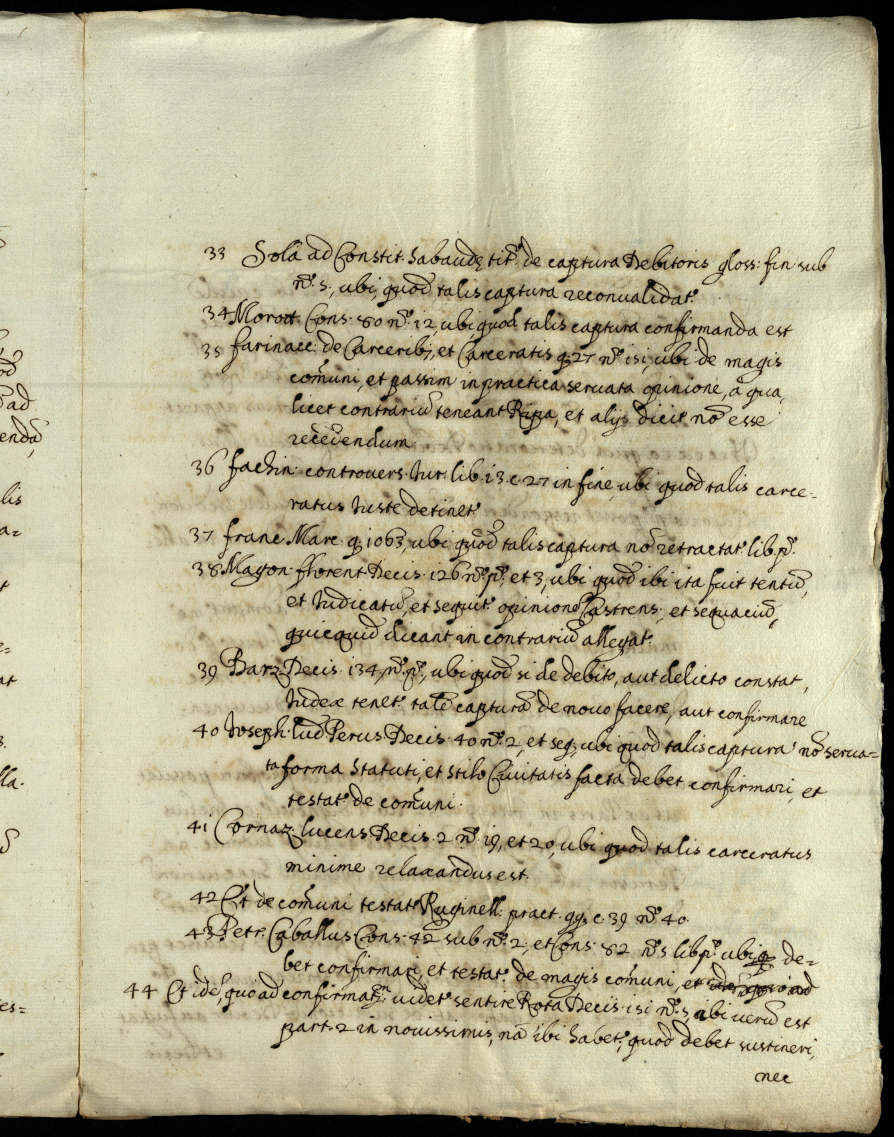 33 Sola ad Constit. Sabaudę tit.º de captura Debitoris gloss. fin sub
nº. 5., ubi, quod talis captura reconualidat.ʳ
34 Morott. Cons. 80 nº. 12, ubi quod talis captura confirmanda est
35 farinacc. de Carcerib; et Carceratis q. 27 nº. 151, ubi de magis
com̃uni, et passim in practica seruata opinione, à qua,
licet contrariũ teneant Ripa, et alij dicit nõ esse
recedendum
36 fachin: controuers. Iur. lib. 13. c. 27 in fine, ubi quod talis carce-
ratus Iuste detinet.ʳ
37 franc Marc. q. 1063, ubi quod talis captura nõ retractat.ʳ lib. p.º
38 Magon. fflorent Decis. 126 nº. pº. et 3, ubi quod ibi ita fuit tentũ,
et Iudicatũ, et sequit.ʳ opinionẽ Castrens. et sequaciũ,
quicquid dicant in contrariũ allegat.
39 Barz. Decis. 134, nº. pº., ubi quod si de debito, aut delicto constat,
Iudex tenet.ʳ talẽ capturã de nouo facere, aut confirmare
40 Ioseph. Lud. Perus Decis. 40 nº. 2, et seq; ubi quod talis captura nõ serua-
ta forma Statuti, et stilo Ciuitatis facta debet confirmari, et
testat.ʳ de com̃uni.
41 Cornaz. lucens Decis. 2 nº. 19, et 20, ubi quod talis carceratus
minime relaxandus est.
42 Et de com̃uni testat.ʳ Ruginell. pract. qq. c. 39 nº. 40.
43 Petr. Caballus Cons. 42 sub nº. 2, et Cons. 82 nº. 5 lib. pº. ubi q de-
bet confirmari, et testat.ʳ de magis com̃uni, et idẽ, quo ad
44 Et idẽ, quo ad confirmat.ⁿ uidet.ʳ sentire Rota Decis. 151 nº. 5, ubi uerũ est
part. 2 in nouissimis, nã ibi habet.ʳ, quod debet sustineri,
nec